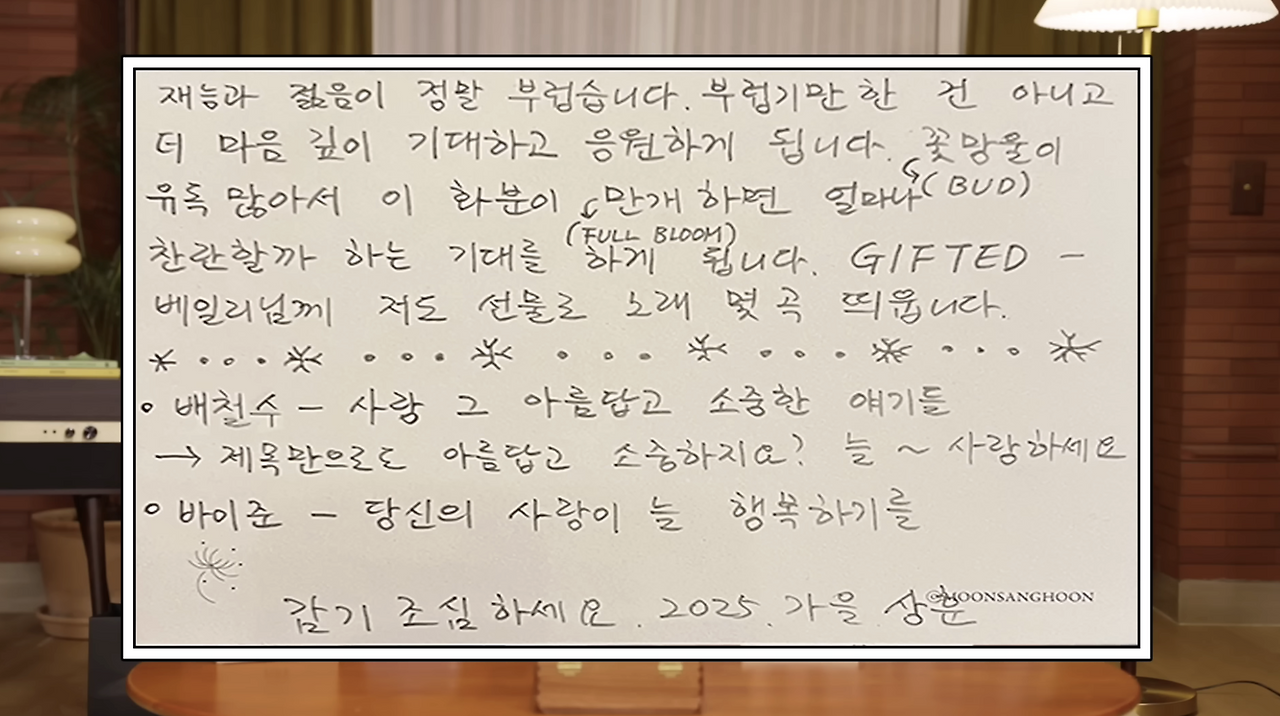 재능과 젊음이 정말 부럽습니다. 부럽기만 한 건 아니고
더 마음 깊이 기대하고 응원하게 됩니다. 꽃망울이
(BUD)
유독 많아서 이 화분이 만개하면 얼마나
(FULL BLOOM)
찬란할까 하는 기대를 하게 됩니다. GIFTED -
베일리님께 저도 선물로 노래 몇 곡 띄웁니다.
• 배철수 - 사랑 그 아름답고 소중한 얘기들
→ 제목만으로도 아름답고 소중하지요? 늘 ~ 사랑하세요
• 바이준 - 당신의 사랑이 늘 행복하기를
감기 조심하세요. 2025. 가을 상훈
©MOONSANGHOON